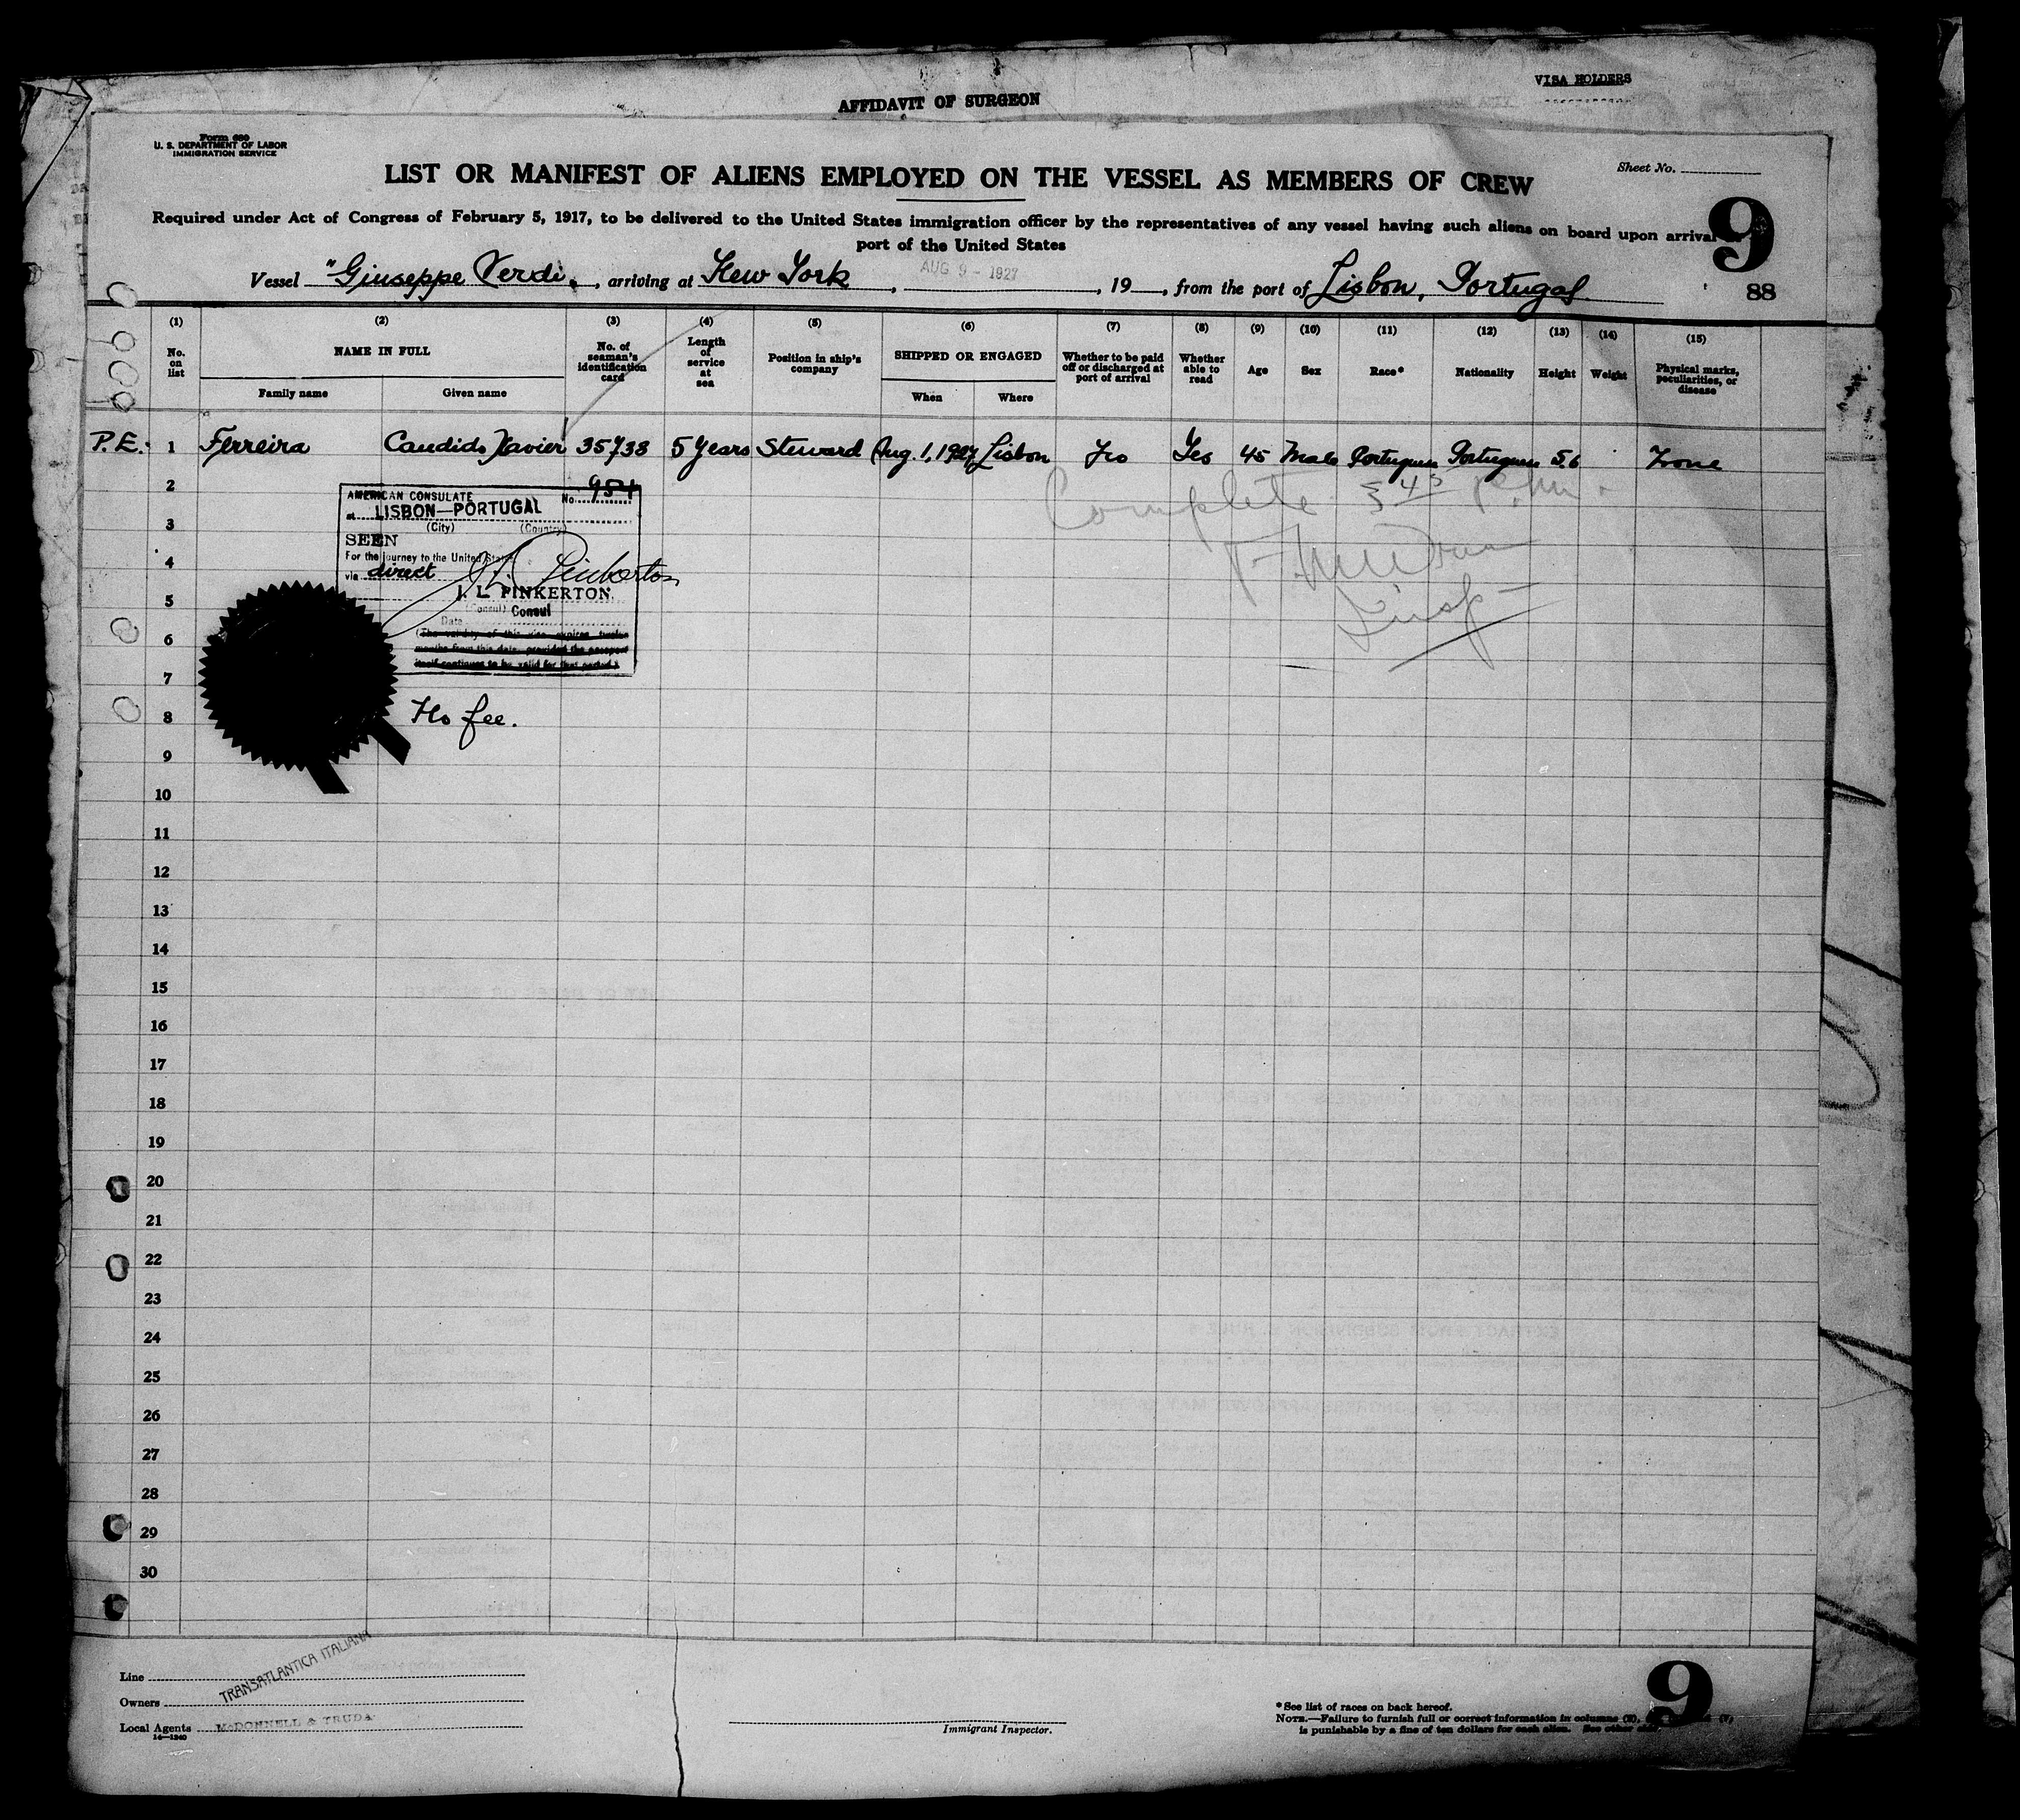 VISA HOLDERS
AFFIDAVIT OF SURGEON
Form 680
U. S. DEPARTMENT OF LABOR
IMMIGRATION SERVICE
Sheet No.
LIST OR MANIFEST OF ALIENS EMPLOYED ON THE VESSEL AS MEMBERS OF CREW
9
Required under Act of Congress of February 5, 1917, to be delivered to the United States immigration officer by the representatives of any vessel having such aliens on board upon arrival
port of the United States
Vessel "Giuseppe Verdi", arriving at New York, AUG 9 - 1927, 19, from the port of Lisbon, Portugal
88
(1) (2) (3) (4) (5) (6) (7) (8) (9) (10) (11) (12) (13) (14) (15)
No. on list NAME IN FULL No. of seaman's identification card Length of service at sea Position in ship's company SHIPPED OR ENGAGED Whether to be paid off or discharged at port of arrival Whether able to read Age Sex Race* Nationality Height Weight Physical marks, peculiarities, or disease
Family name Given name When Where
P.E. 1 Ferreira Candido Xavier 35738 5 Years Steward Aug. 1, 1927 Lisbon No Yes 45 Male Portuguese Portuguese 5.6 None
2
Complete 5 45 P.M.
AMERICAN CONSULATE No. 954
at LISBON—PORTUGAL
3
(City) (Country)
SEEN
For the journey to the United States
4
via direct
J. L. Pinkerton
J. L. PINKERTON.
5
(Consul) Consul
Insp
Date
6
(The validity of this visa expires twelve
months from this date, provided the passport
itself continues to be valid for that period.)
7
No fee.
8
9
10
11
12
13
14
15
16
17
18
19
20
21
22
23
24
25
26
27
28
29
30
Line
TRANSATLANTICA ITALIANA
Owners
Local Agents McDONNELL & TRUDA
14—1240
Immigrant Inspector.
*See list of races on back hereof.
NOTE.—Failure to furnish full or correct information in columns (2),
is punishable by a fine of ten dollars for each alien. See other side.
9